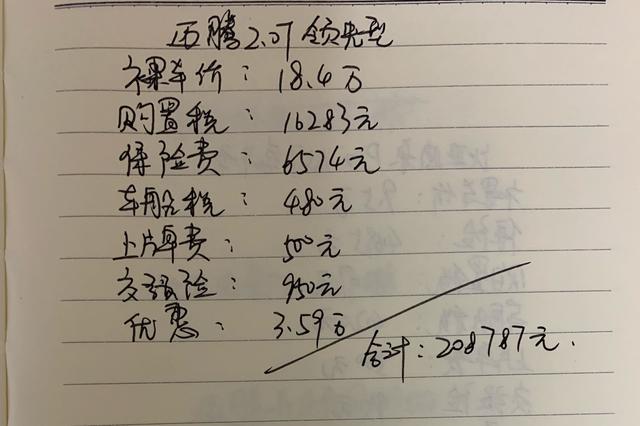 迈腾2.0T 领先型
裸车价：18.4万
购置税：16283元
保险费：6574元
车船税：480元
上牌费：500元
交强险：950元
优惠：3.59万
合计：208787元.